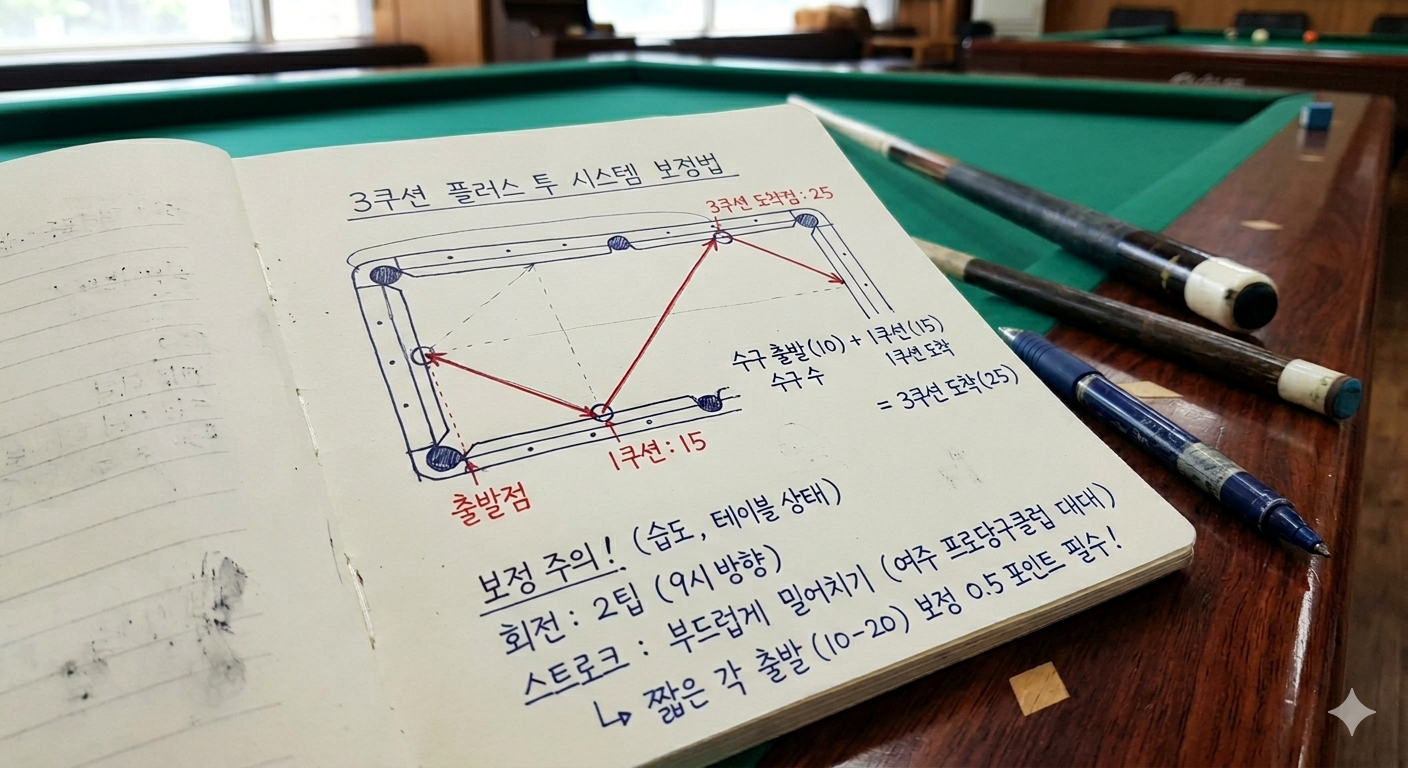 3쿠션 플러스 투 시스템 보정법
3쿠션 도착점: 25
수구 출발(10) + 1쿠션(15)
수구 수 1쿠션 도착
= 3쿠션 도착(25)
1쿠션: 15
출발점
보정 주의! (습도, 테이블 상태)
회전: 2팁 (9시 방향)
스트로크: 부드럽게 밀어치기 (여주 프로당구클럽 대대)
↳ 짧은 각 출발 (10-20) 보정 0.5 포인트 필수!